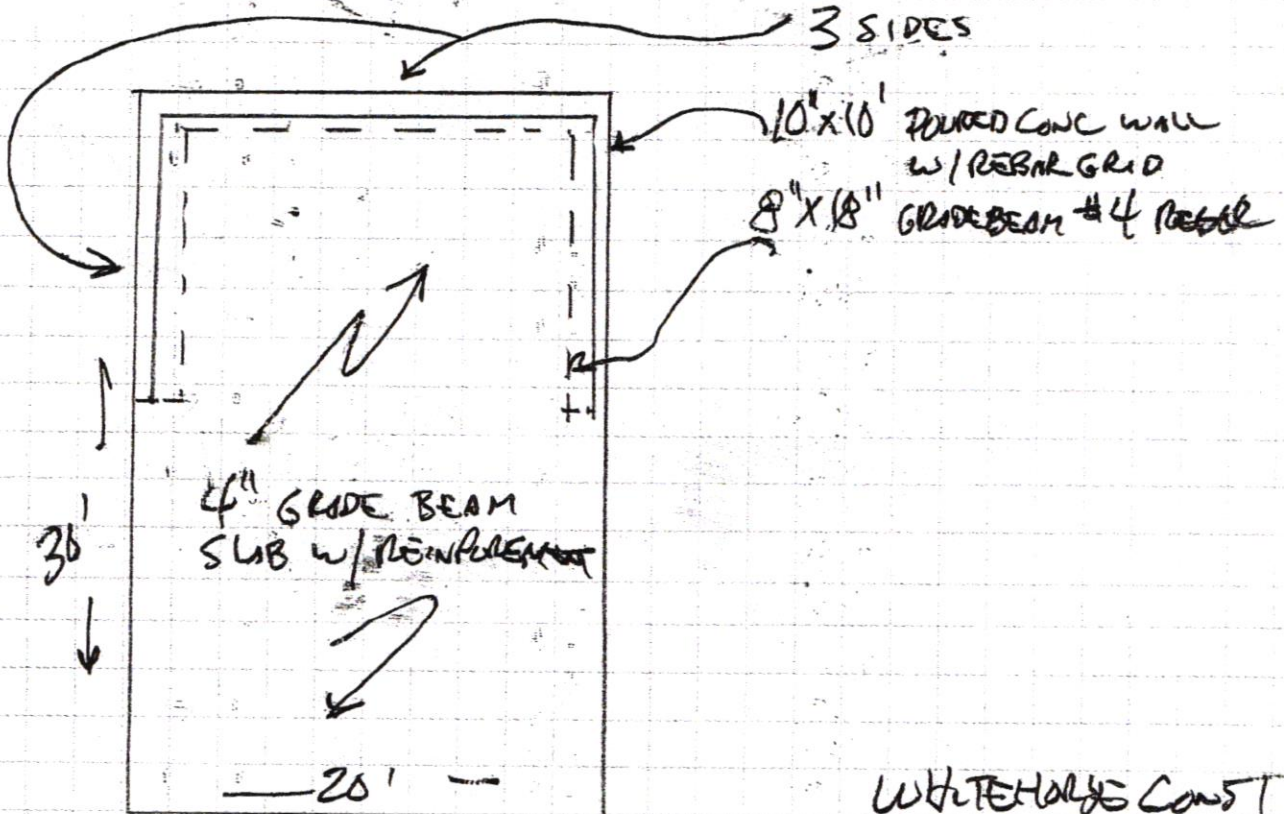 3 SIDES
10"x10' POURED CONC WALL
W/REBAR GRID
8"X18" GRADEBEAM #4 REBAR
4" GRADE BEAM
SLAB W/
30'
20'
WHITEHORSE CONST